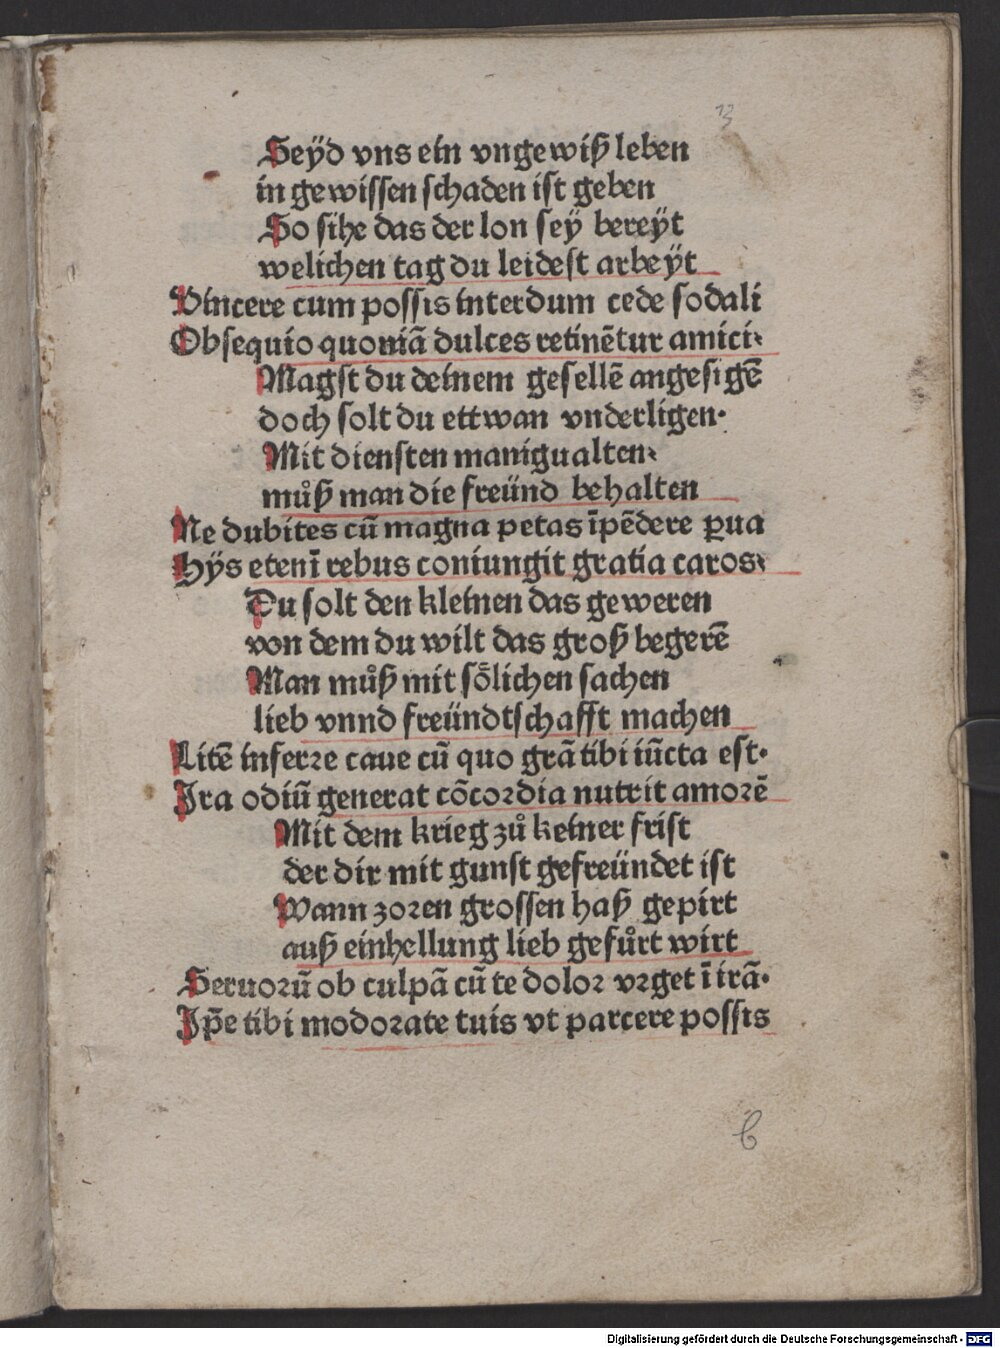 3
Seÿd vns ein vngewiß leben
in gewissen schaden ist geben
So sihe das der lon seÿ bereÿt
welichen tag du leidest arbeÿt
Vincere cum possis interdum cede sodali
Obsequio quoniã dulces retinẽtur amici·
Magst du deinem gesellẽ angesigẽ
doch solt du ettwan vnderligen·
Mit diensten manigualten·
můß man die freünd behalten
Ne dubites cũ magna petas ĩpẽdere ꝑua
Hÿs etenĩ rebus coniungit gratia caros·
Du solt den kleinen das geweren
von dem du wilt das groß begerẽ
Man můß mit soͤlichen sachen
lieb vnnd freündtschafft machen
Litẽ inferre caue cũ quo grã tibi iũcta est·
Ira odiũ generat cõcordia nutrit amorẽ
Mit dem krieg zů keiner frist
der dir mit gunst gefreündet ist
Wann zoren grossen haß gepirt
auß einhellung lieb gefůrt wirt
Seruorũ ob culpã cũ te dolor vrget ĩ irã·
Ip̃e tibi modorate tuis vt parcere possis
b
Digitalisierung gefördert durch die Deutsche Forschungsgemeinschaft - DFG